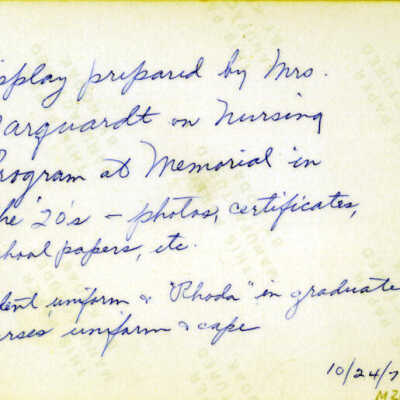 splay prepared by Mrs.
arquardt on Nursing
rogram at Memorial in
he '20's – photos, certificates,
hool papers, etc.
dent uniform & "Rhoda" in graduate
rses' uniform & cape
10/24/7
M2